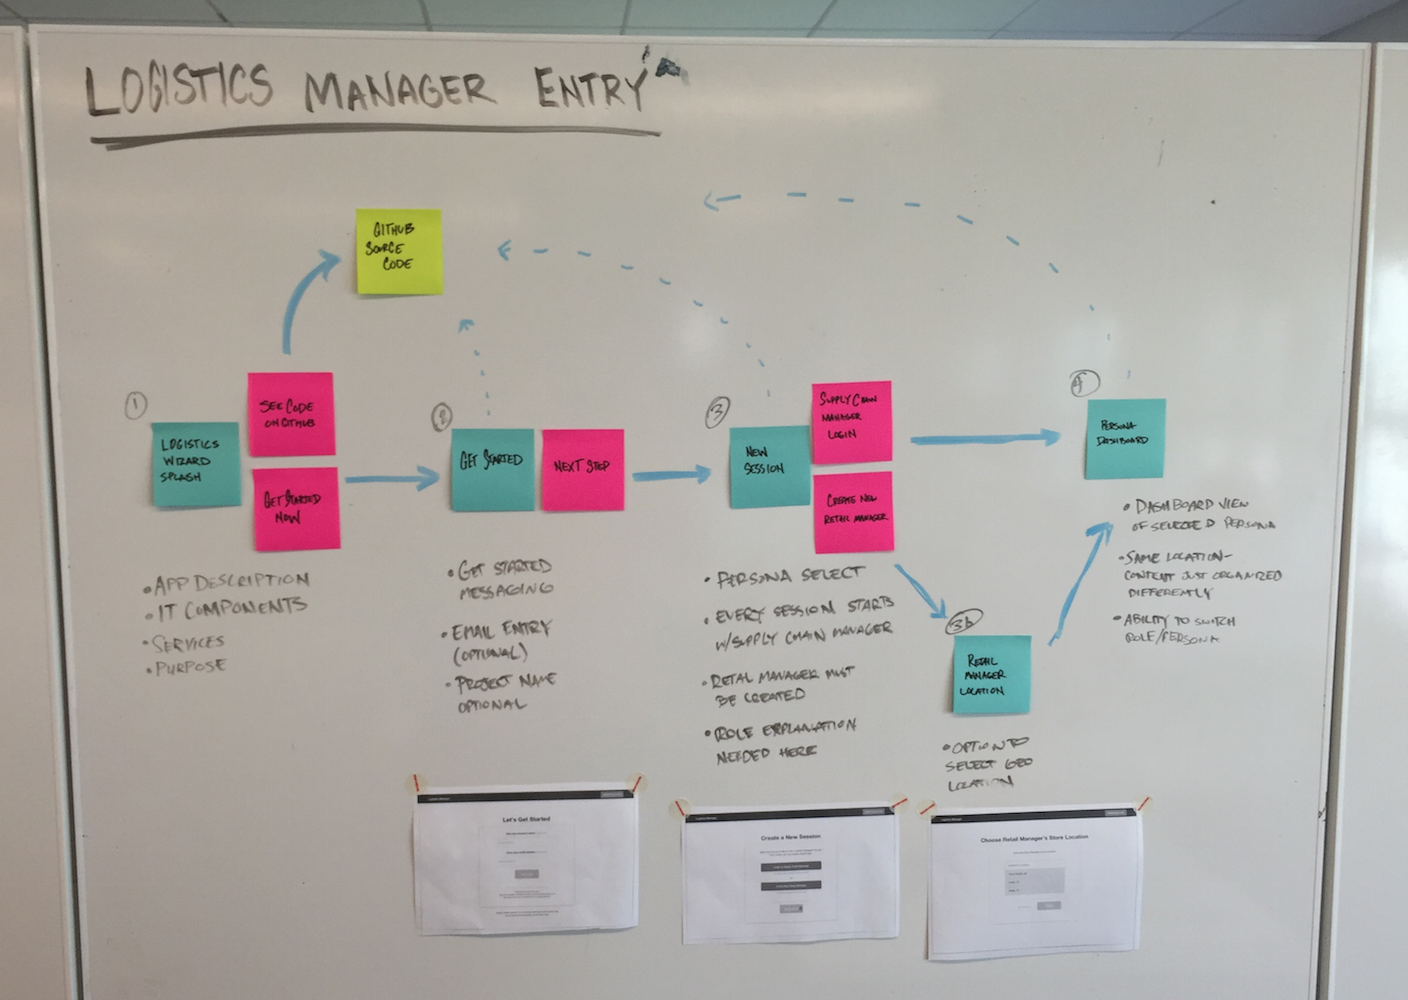 LOGISTICS MANAGER ENTRY
GITHUB
SOURCE
CODE
1
LOGISTICS
WIZARD
SPLASH
SEE CODE
ON GITHUB
GET STARTED
NOW
• APP DESCRIPTION
• IT COMPONENTS
• SERVICES
• PURPOSE
2
GET STARTED
NEXT STEP
• GET STARTED
MESSAGING
• EMAIL ENTRY
(OPTIONAL)
• PROJECT NAME
OPTIONAL
3
NEW
SESSION
SUPPLY CHAIN
MANAGER
LOGIN
CREATE NEW
RETAIL MANAGER
• PERSONA SELECT
• EVERY SESSION STARTS
W/SUPPLY CHAIN MANAGER
• RETAIL MANAGER MUST
BE CREATED
• ROLE EXPLANATION
NEEDED HERE
3b
RETAIL
MANAGER
LOCATION
• OPTION TO
SELECT GEO
LOCATION
4
PERSONA
DASHBOARD
• DASHBOARD VIEW
OF SELECTED PERSONA
• SAME LOCATION-
CONTENT JUST ORGANIZED
DIFFERENTLY
• ABILITY TO SWITCH
ROLE/PERSONA
Let's Get Started
Create a New Session
Choose Retail Manager's Store Location